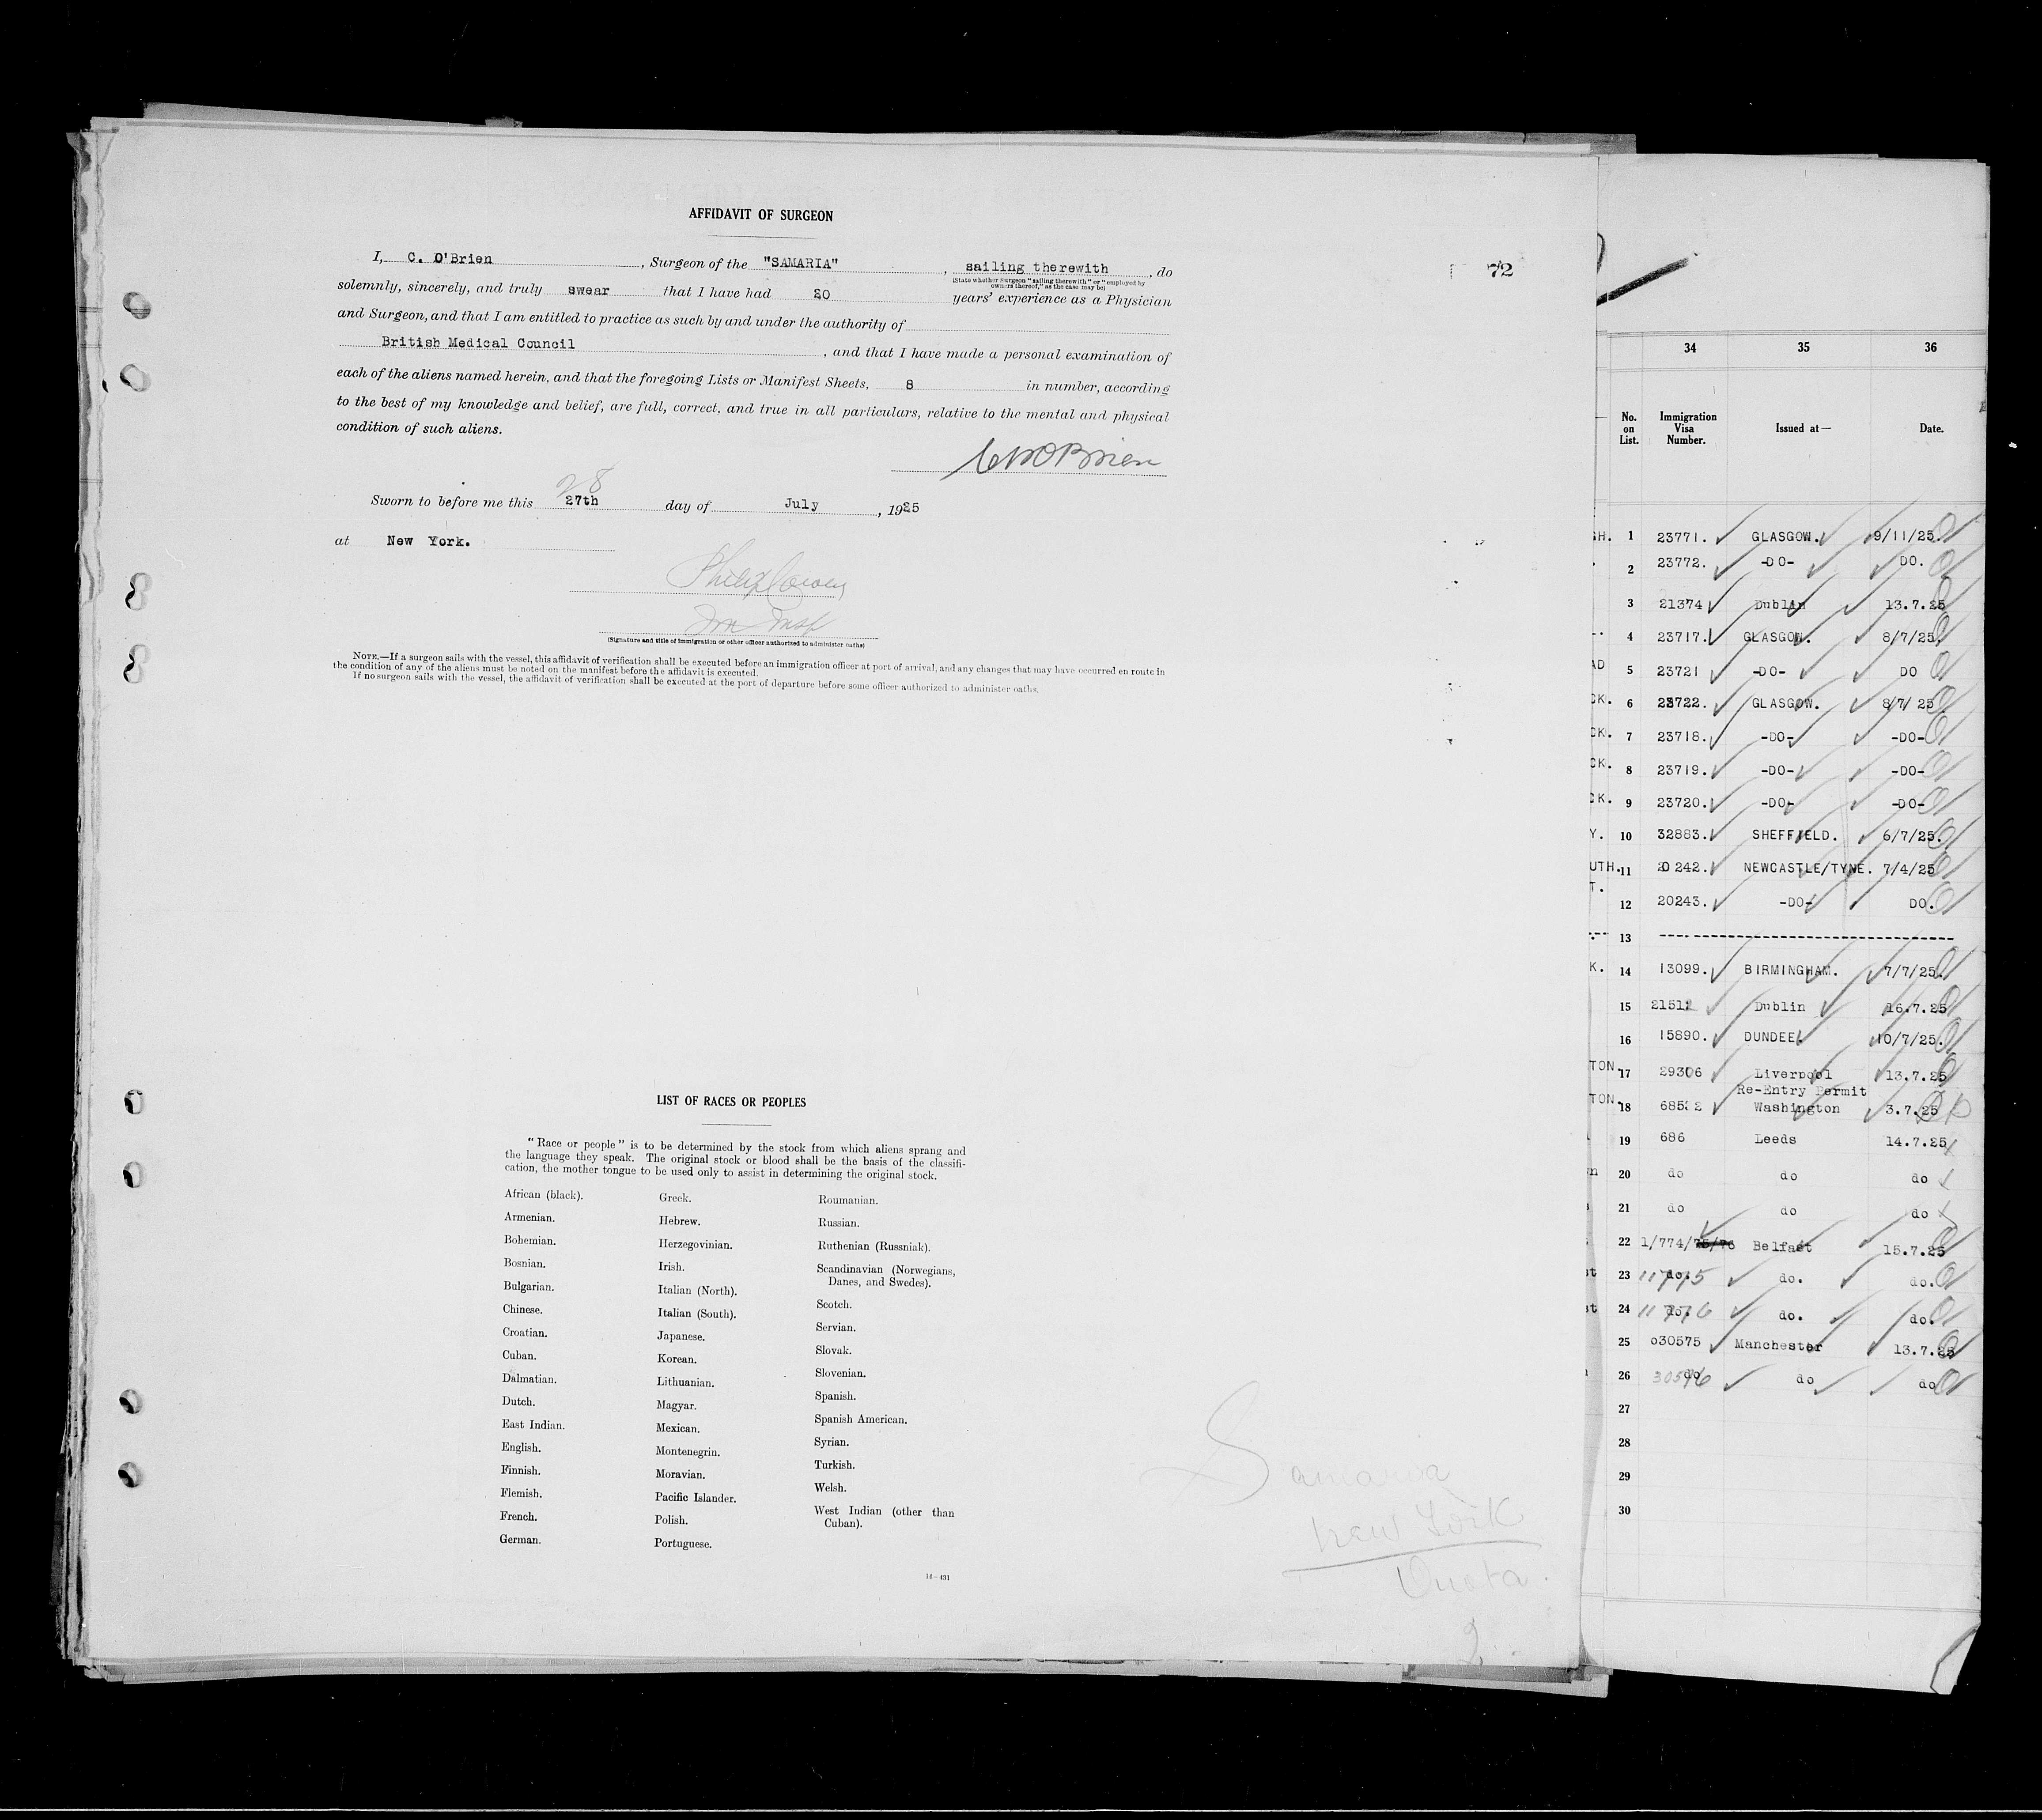 AFFIDAVIT OF SURGEON
72
I, C. O'Brien, Surgeon of the "SAMARIA", sailing therewith, do
(State whether Surgeon "sailing therewith" or "employed by
owners thereof," as the case may be)
solemnly, sincerely, and truly swear that I have had 20 years' experience as a Physician
and Surgeon, and that I am entitled to practice as such by and under the authority of
British Medical Council, and that I have made a personal examination of
each of the aliens named herein, and that the foregoing Lists or Manifest Sheets, 8 in number, according
to the best of my knowledge and belief, are full, correct, and true in all particulars, relative to the mental and physical
condition of such aliens.
O'Brien
28
Sworn to before me this 27th day of July, 1925
at New York.
Imm Insp
(Signature and title of immigration or other officer authorized to administer oaths)
NOTE.—If a surgeon sails with the vessel, this affidavit of verification shall be executed before an immigration officer at port of arrival, and any changes that may have occurred en route in
the condition of any of the aliens must be noted on the manifest before the affidavit is executed.
If no surgeon sails with the vessel, the affidavit of verification shall be executed at the port of departure before some officer authorized to administer oaths.
LIST OF RACES OR PEOPLES
"Race or people" is to be determined by the stock from which aliens sprang and
the language they speak. The original stock or blood shall be the basis of the classifi-
cation, the mother tongue to be used only to assist in determining the original stock.
African (black).
Armenian.
Bohemian.
Bosnian.
Bulgarian.
Chinese.
Croatian.
Cuban.
Dalmatian.
Dutch.
East Indian.
English.
Finnish.
Flemish.
French.
German.
Greek.
Hebrew.
Herzegovinian.
Irish.
Italian (North).
Italian (South).
Japanese.
Korean.
Lithuanian.
Magyar.
Mexican.
Montenegrin.
Moravian.
Pacific Islander.
Polish.
Portuguese.
Roumanian.
Russian.
Ruthenian (Russniak).
Scandinavian (Norwegians,
Danes, and Swedes).
Scotch.
Servian.
Slovak.
Slovenian.
Spanish.
Spanish American.
Syrian.
Turkish.
Welsh.
West Indian (other than
Cuban).
14—431
Samaria
New York
Quota.
2.
34 35 36
No. on List. Immigration Visa Number. Issued at— Date.
GH. 1 23771. GLASGOW. 9/11/25.
2 23772. -DO- DO.
3 21374 Dublin 13.7.25
4 23717. GLASGOW. 8/7/25.
AD 5 23721 -DO- DO
CK. 6 23722. GLASGOW. 8/7/25
CK. 7 23718. -DO- -DO-
CK. 8 23719. -DO- -DO-
CK. 9 23720. -DO- -DO-
Y. 10 32883. SHEFFIELD. 6/7/25.
UTH. 11 20242. NEWCASTLE/TYNE. 7/4/25
T. 12 20243. -DO- DO.
13 --------------------
K. 14 13099. BIRMINGHAM. 7/7/25.
15 Dublin 16.7.25
16 15890. DUNDEE. 10/7/25.
TON. 17 29306 Liverpool 13.7.25
Re-Entry Permit
TON. 18 Washington 3.7.25
19 686 Leeds 14.7.25
n 20 do do do
21 do do do
22 1/774/75/76 Belfast 15.7.25
st 23 do. 11775 do. do.
st 24 do. 11776 do. do.
25 o30575 Manchester 13.7.25
26 do 30576 do do
27
28
29
30